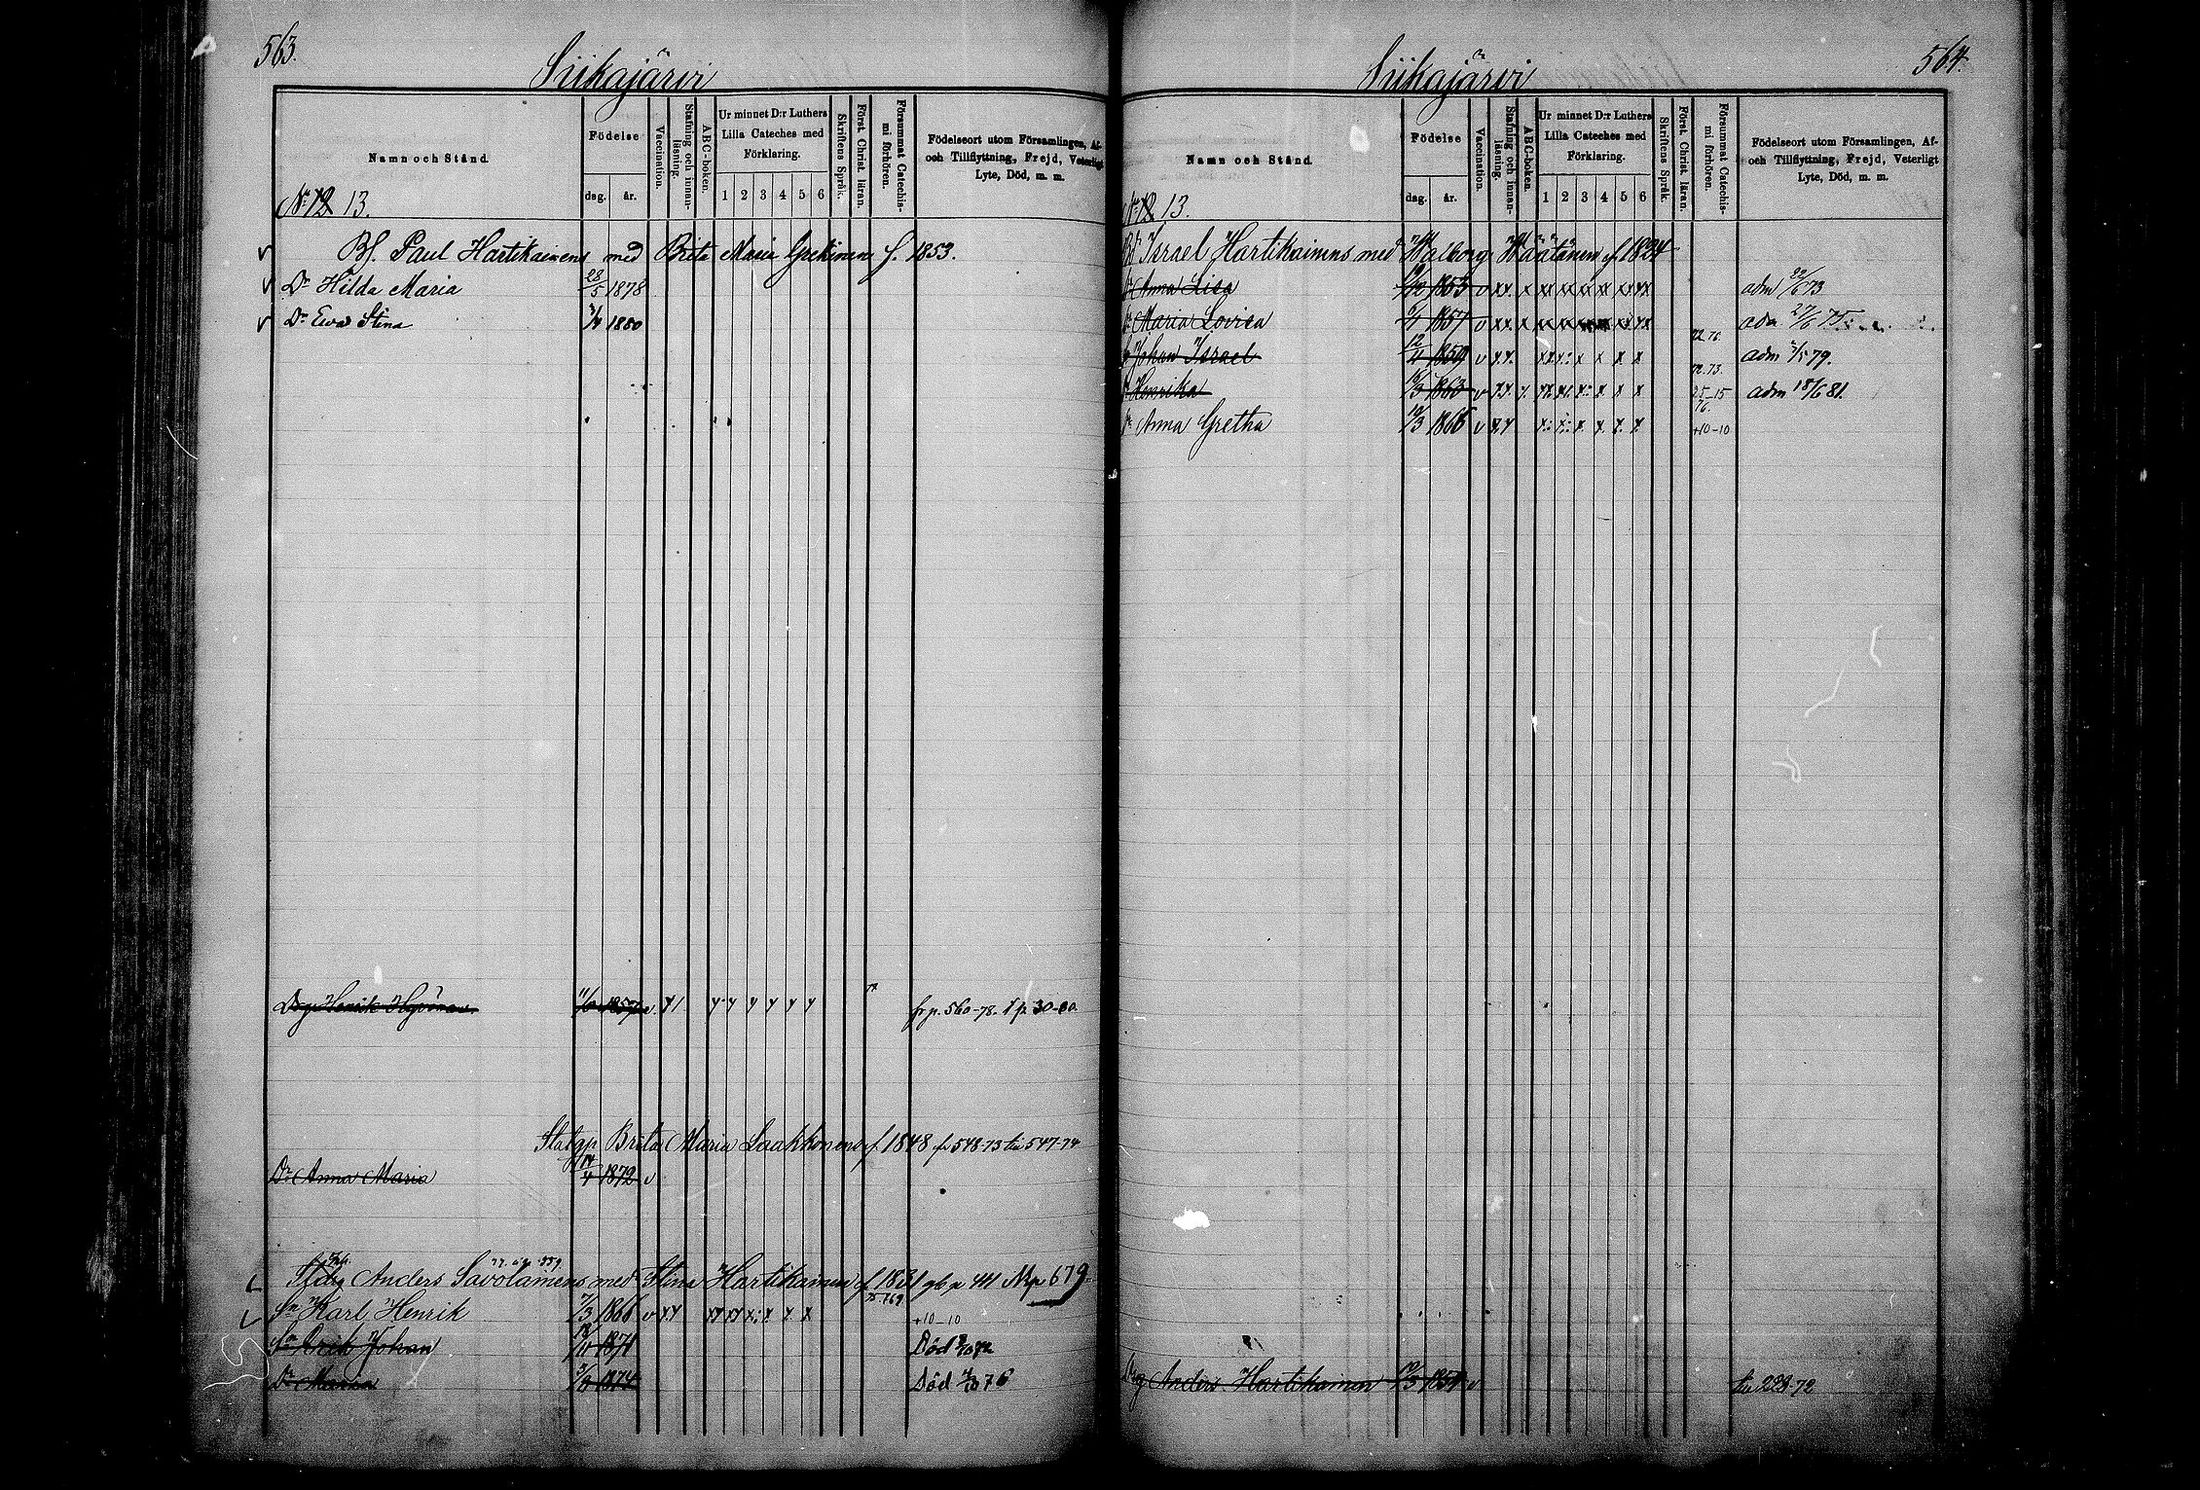 563.
Siikajärvi
Namn och Stånd.
Födelse
dag. år.
Vaccination.
Stafning och innan-läsning.
ABC-boken.
Ur minnet D:r Luthers Lilla Cateches med Förklaring.
1 2 3 4 5 6
Skriftens Språk.
Först. Christ. läran.
Försummat Catechis-mi förhören.
Födelseort utom Församlingen, Af- och Tillflyttning, Frejd, Veterligt Lyte, Död, m. m.
N:o 12 13.
Paul Hartikainens med Brita Maria f. 1853.
Dr Hilda Maria 28/5 1878
Dr Eva Stina 1880
Henrik 1857 v. fr p. 560-78. t p 30-80
Brita Maria Laakkonens f. 1848 fr 548-73 till 547-74
Dr Anna Maria 14/4 1872 v
Anders Savolainens med Stina Hartikainen f. 1831 p 441 Np 679
Sn Karl Henrik 7/3 1866 v x x x x x +10-10
Sn Erik Johan 1871 Död
Dr Maria 1874 Död 76
564.
Siikajärvi
Namn och Stånd.
Födelse
dag. år.
Vaccination.
Stafning och innan-läsning.
ABC-boken.
Ur minnet D:r Luthers Lilla Cateches med Förklaring.
1 2 3 4 5 6
Skriftens Språk.
Först. Christ. läran.
Försummat Catechis-mi förhören.
Födelseort utom Församlingen, Af- och Tillflyttning, Frejd, Veterligt Lyte, Död, m. m.
N:o 12 13.
Israel Hartikainens med Walborg Wäätänen f. 1824
Dr Anna Lisa 1853 v xx x adm 22/6 73
Dr Maria Lovisa 1857 v xx x adm 27/6 75
72 76.
Johan Israel 12/4 1859 v x x x x x x adm 79.
72.73.
Dr Henrika 1863 v x x x x adm 18/6 81.
25-15
76.
Dr Anna Gretha 1866 v x x x x x x +10-10
Anders Hartikainen 1854 v till 228-72